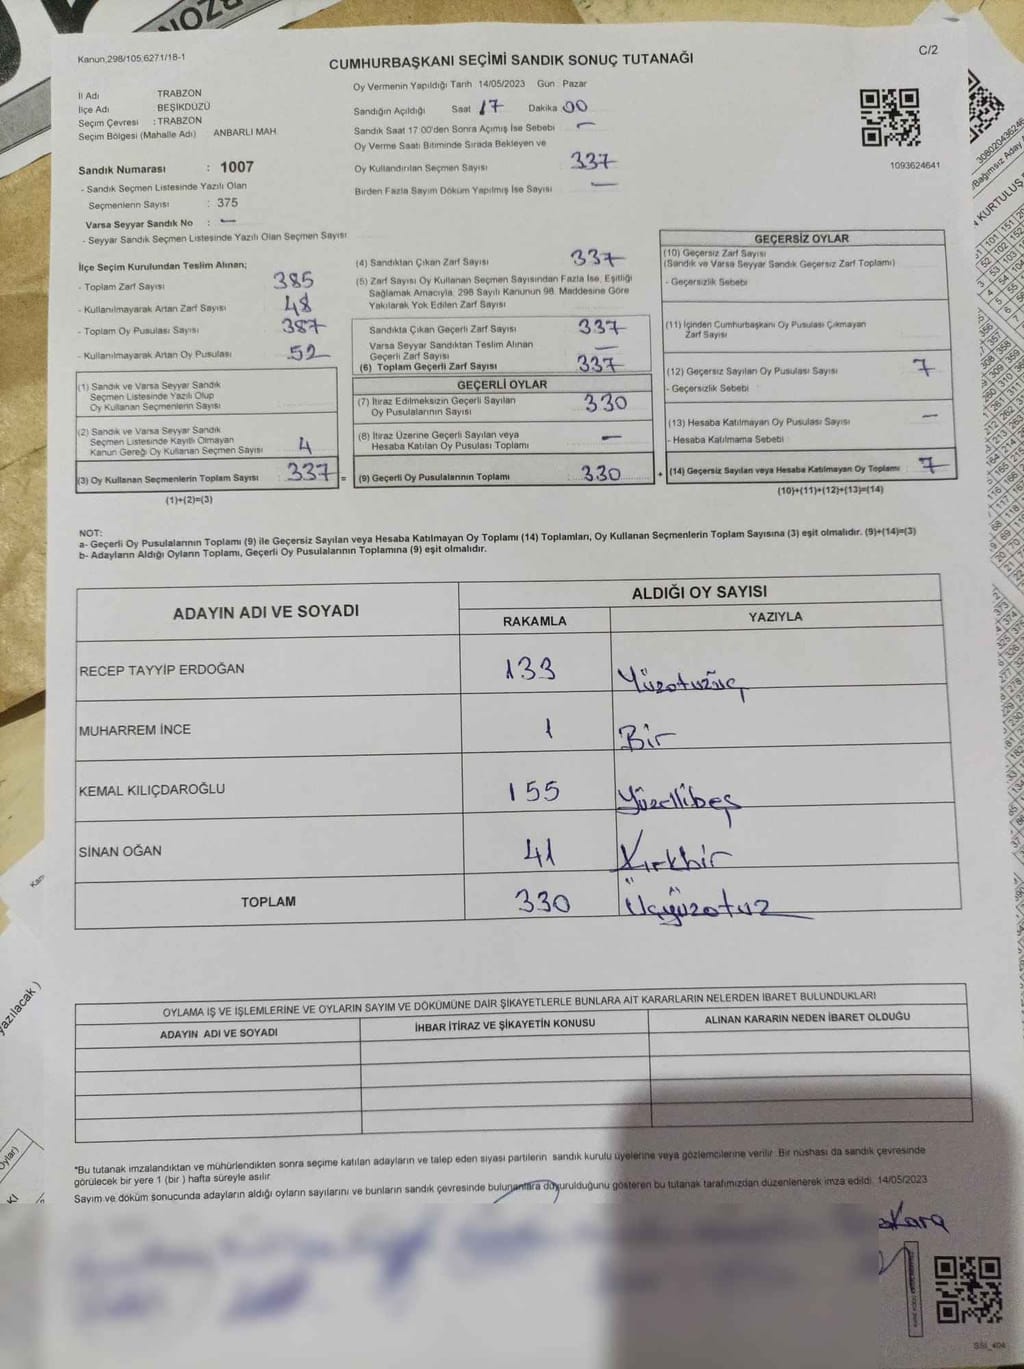 Kanun,298/105,6271/18-1
C/2
CUMHURBAŞKANI SEÇİMİ SANDIK SONUÇ TUTANAĞI
İl Adı TRABZON
İlçe Adı BEŞİKDÜZÜ
Seçim Çevresi : TRABZON
Seçim Bölgesi (Mahalle Adı) ANBARLI MAH.
Sandık Numarası : 1007
- Sandık Seçmen Listesinde Yazılı Olan
Seçmenlerin Sayısı : 375
Varsa Seyyar Sandık No : —
- Seyyar Sandık Seçmen Listesinde Yazılı Olan Seçmen Sayısı
Oy Vermenin Yapıldığı Tarih 14/05/2023 Gün Pazar
Sandığın Açıldığı Saat 17 Dakika 00
Sandık Saat 17:00'den Sonra Açımış İse Sebebi —
Oy Verme Saati Bitiminde Sırada Bekleyen ve
Oy Kullandırılan Seçmen Sayısı 337
Birden Fazla Sayım Döküm Yapılmış İse Sayısı —
1093624641
İlçe Seçim Kurulundan Teslim Alınan;
- Toplam Zarf Sayısı 385
- Kullanılmayarak Artan Zarf Sayısı 48
- Toplam Oy Pusulası Sayısı 387
- Kullanılmayarak Artan Oy Pusulası 52
(1) Sandık ve Varsa Seyyar Sandık
Seçmen Listesinde Yazılı Olup
Oy Kullanan Seçmenlerin Sayısı
(2) Sandık ve Varsa Seyyar Sandık
Seçmen Listesinde Kayıtlı Olmayan
Kanun Gereği Oy Kullanan Seçmen Sayısı 4
(3) Oy Kullanan Seçmenlerin Toplam Sayısı 337 =
(1)+(2)=(3)
(4) Sandıktan Çıkan Zarf Sayısı 337
(5) Zarf Sayısı Oy Kullanan Seçmen Sayısından Fazla İse, Eşitliği
Sağlamak Amacıyla, 298 Sayılı Kanunun 98. Maddesine Göre
Yakılarak Yok Edilen Zarf Sayısı
Sandıkta Çıkan Geçerli Zarf Sayısı 337
Varsa Seyyar Sandıktan Teslim Alınan
Geçerli Zarf Sayısı —
(6) Toplam Geçerli Zarf Sayısı 337
GEÇERLİ OYLAR
(7) İtiraz Edilmeksizin Geçerli Sayılan
Oy Pusulalarının Sayısı 330
(8) İtiraz Üzerine Geçerli Sayılan veya
Hesaba Katılan Oy Pusulası Toplamı —
(9) Geçerli Oy Pusulalarının Toplamı 330 +
GEÇERSİZ OYLAR
(10) Geçersiz Zarf Sayısı
(Sandık ve Varsa Seyyar Sandık Geçersiz Zarf Toplamı)
- Geçersizlik Sebebi
(11) İçinden Cumhurbaşkanı Oy Pusulası Çıkmayan
Zarf Sayısı
(12) Geçersiz Sayılan Oy Pusulası Sayısı 7
- Geçersizlik Sebebi
(13) Hesaba Katılmayan Oy Pusulası Sayısı —
- Hesaba Katılmama Sebebi
(14) Geçersiz Sayılan veya Hesaba Katılmayan Oy Toplamı 7
(10)+(11)+(12)+(13)=(14)
NOT:
a- Geçerli Oy Pusulalarının Toplamı (9) ile Geçersiz Sayılan veya Hesaba Katılmayan Oy Toplamı (14) Toplamları, Oy Kullanan Seçmenlerin Toplam Sayısına (3) eşit olmalıdır. (9)+(14)=(3)
b- Adayların Aldığı Oyların Toplamı, Geçerli Oy Pusulalarının Toplamına (9) eşit olmalıdır.
ADAYIN ADI VE SOYADI ALDIĞI OY SAYISI
RAKAMLA YAZIYLA
RECEP TAYYİP ERDOĞAN 133 Yüzotuzüç
MUHARREM İNCE 1 Bir
KEMAL KILIÇDAROĞLU 155 Yüzellibeş
SİNAN OĞAN 41 Kırkbir
TOPLAM 330 Üçyüzotuz
OYLAMA İŞ VE İŞLEMLERİNE VE OYLARIN SAYIM VE DÖKÜMÜNE DAİR ŞİKAYETLERLE BUNLARA AİT KARARLARIN NELERDEN İBARET BULUNDUKLARI
ADAYIN ADI VE SOYADI İHBAR İTİRAZ VE ŞİKAYETİN KONUSU ALINAN KARARIN NEDEN İBARET OLDUĞU
*Bu tutanak imzalandıktan ve mühürlendikten sonra seçime katılan adayların ve talep eden siyasi partilerin sandık kurulu üyelerine veya gözlemcilerine verilir. Bir nüshası da sandık çevresinde
görülecek bir yere 1 (bir) hafta süreyle asılır.
Sayım ve döküm sonucunda adayların aldığı oyların sayılarını ve bunların sandık çevresinde bulunanlara duyurulduğunu gösteren bu tutanak tarafımızdan düzenlenerek imza edildi. 14/05/2023
SSI_404